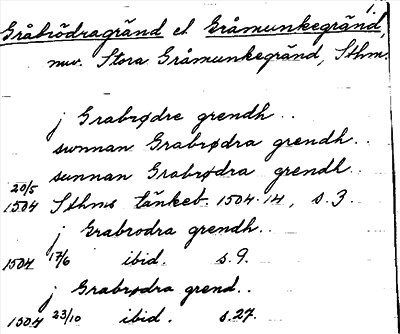 1.
Gråbrödragränd el Gråmunkegränd,
nuv. Stora Gråmunkegränd, Sthm.
j Grabrødre grendh..
swnnan Grabrødra grendh..
sunnan Grabrødra grendh..
20/5
1504 Sthms tänkeb. 1504-14, s.3.
j Grabrodra grendh..
1504 17/6 ibid. s.9.
j Grabrødra grend..
1504 23/10 ibid. s.27.